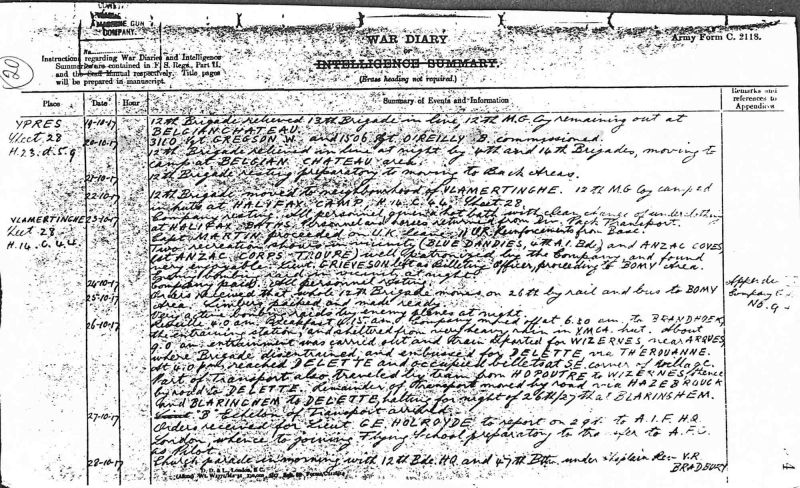 MACHINE GUN
COMPANY.
No.
Instructions regarding War Diaries and Intelligence
Summaries are contained in F. S. Regs., Part II.
and the Staff Manual respectively. Title pages
will be prepared in manuscript.
20
WAR DIARY
or
INTELLIGENCE SUMMARY.
(Erase heading not required.)
Army Form C. 2118.
Place Date Hour Summary of Events and Information Remarks and references to Appendices
YPRES 19-10-17 12th Brigade relieved 13th Brigade in line 12th M.G. Coy remaining out at
Sheet 28 BELGIAN CHATEAU.
H.23.d.5.9 20-10-17 3110 Sgt. GREGSON W. and 1506 Sgt. O'REILLY B. commissioned.
12th Brigade relieved in line at night by 4th and 14th Brigades, moving to
camp at BELGIAN CHATEAU area.
21-10-17 12th Brigade resting preparatory to moving to Back Areas.
22-10-17 12th Brigade moved to neighbourhood of VLAMERTINGHE. 12th M.G. Coy camped
in huts at HALIFAX CAMP, H.14.C.4.4. Sheet 28.
VLAMERTINGHE 23-10-17 Company resting. All personnel given hot bath with clean change of underclothing
Sheet 28 at HALIFAX BATHS. Personnel and horses returned from Div. Pack Transport.
H.14.C.4.4. Capt. MARTIN proceeded on U.K. leave. 11 O.R. Reinforcements from Base.
Two recreation shows in vicinity (BLUE DANDIES, 4th A.I. Bde) and ANZAC COVES,
1st ANZAC CORPS TROUPE) well patronised by the Company, and found
very enjoyable. Lieut. GRIEVESON left as Billeting Officer, proceeding to BOMY Area.
raid in vicinity at night.
24-10-17 Company paid. All personnel resting.
25-10-17 Orders received that 12th Brigade moves on 26th by rail and bus to BOMY
area. Limbers packed and made ready.
Very active bombing raids by enemy planes at night.
26-10-17 Reveille 4.0 am. Breakfast 4.15 am. Company moved off at 6.30 am. to BRANDHOEK,
the entraining station, and sheltered from very heavy rain in YMCA. hut. About
9.0 am. entrainment was carried out and train departed for WIZERNES, near ARQUES,
where Brigade disentrained, and embussed for DELETTE, via THEROUANNE.
At 4.0 p.m. reached DELETTE and occupied billets at S.E. corner of village.
Part of transport also travelled by train from HOPOUTRE to WIZERNES, thence
by road to DELETTE. Remainder of transport moved by road via HAZEBROUCK
and BLARINGHEM to DELETTE, halting for night of 26th/27th at BLARINGHEM.
27-10-17 "B" Echelon of Transport arrived.
Orders received for Lieut. G.E. HOLROYDE to report on 29th to A.I.F. H.Q.
London, whence to joining Flying School preparatory to transfer to A.F.C.
as Pilot.
28-10-17 Church parade in morning with 12th Bde. HQ. and 47th Bttn. under Chaplain Rev. V.R.
BRADBURY
Appendix
Company
No. 9
D. D. & L., London, E.C.